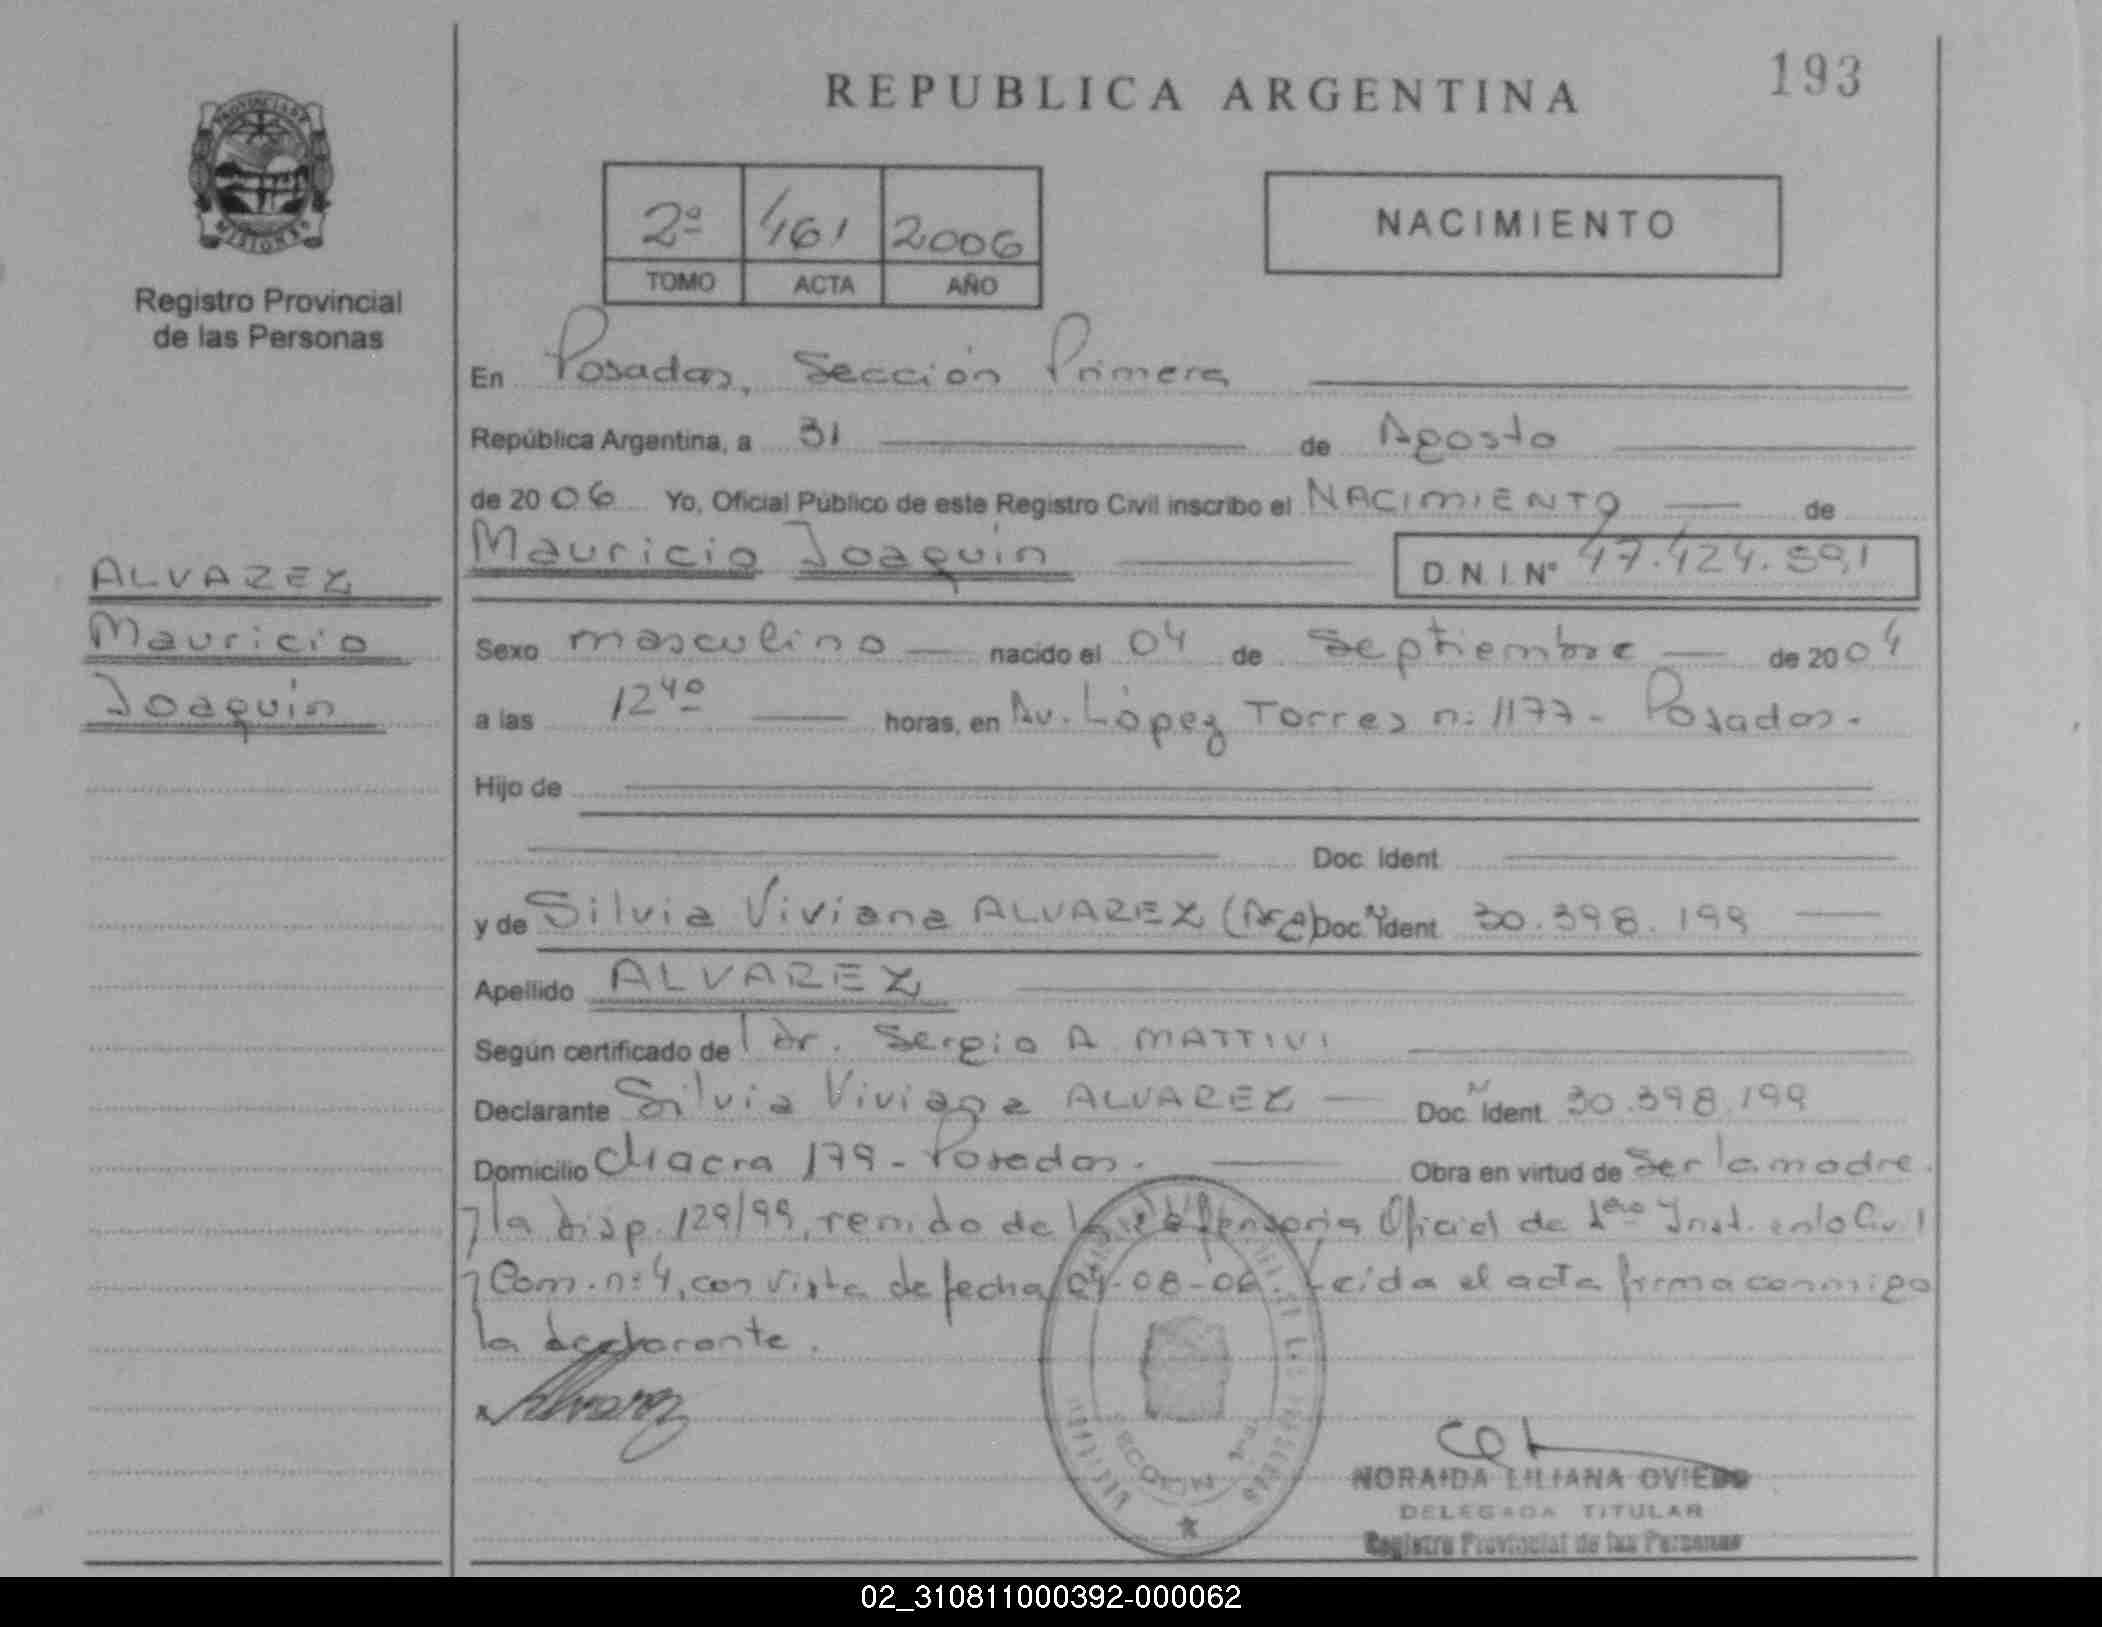 REPUBLICA ARGENTINA
193
PROVINCIA DE
MISIONES
Registro Provincial
de las Personas
2º 461 2006
TOMO ACTA AÑO
NACIMIENTO
En Posadas, Sección Primera
República Argentina, a 31 de Agosto
de 2006 Yo, Oficial Público de este Registro Civil inscribo el NACIMIENTO de
Mauricio Joaquín D.N.I. Nº 47.424.591
ALVAREZ
Mauricio
Joaquín
Sexo masculino nacido el 04 de Septiembre de 2004
a las 12 40 horas, en Av. López Torres n: 1177 - Posadas.
Hijo de
Doc. Ident.
y de Silvia Viviana ALVAREZ Doc. N Ident. 30.398.199
Apellido ALVAREZ
Según certificado de Dr. Sergio A MATTIVI
Declarante Silvia Viviana ALVAREZ Doc. N Ident. 30.398.199
Domicilio Chacra 179 - Posadas. Obra en virtud de Ser la madre.
y la disp. 129/99, de la Defensoria Oficial de 1era Inst. en lo Civil
y Com. n: 4, con vista de fecha 04-08-06. Leida el acta firma conmigo
la declarante.
Alvarez
SECCION
NORAIDA LILIANA OVIEDO
DELEGADA TITULAR
Registro Provincial de las Personas
02_310811000392-000062